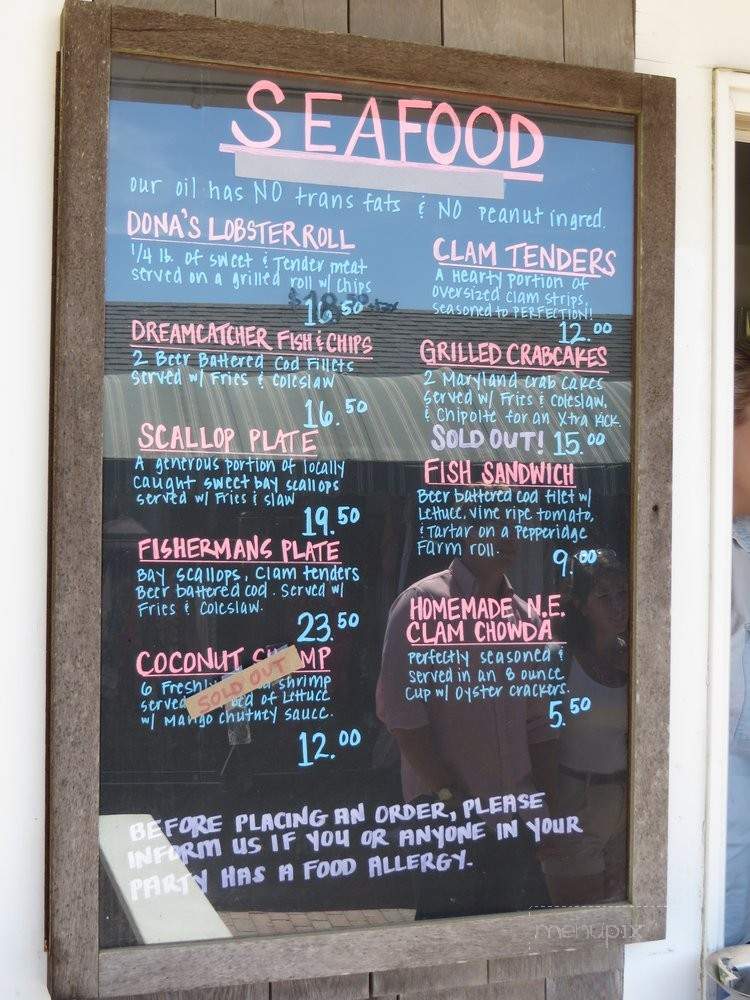 SEAFOOD
our oil has NO trans fats & NO peanut ingred.
DONA'S LOBSTER ROLL
1/4 lb. of sweet & tender meat
served on a grilled roll w/ chips
16.50
DREAMCATCHER FISH & CHIPS
2 Beer Battered Cod Fillets
served w/ Fries & coleslaw
16.50
SCALLOP PLATE
A generous portion of locally
caught sweet bay scallops
served w/ Fries & slaw
19.50
FISHERMANS PLATE
Bay scallops, clam tenders
Beer battered cod. Served w/
Fries & Coleslaw.
23.50
COCONUT
SOLD OUT
6 Freshly shrimp
served bed of Lettuce
w/ Mango chutney sauce.
12.00
CLAM TENDERS
A Hearty portion of
oversized clam strips,
seasoned to PERFECTION!
12.00
GRILLED CRABCAKES
2 Maryland crab cakes
served w/ Fries & coleslaw,
& Chipolte for an Xtra kick.
SOLD OUT! 15.00
FISH SANDWICH
Beer battered cod filet w/
Lettuce, vine ripe tomato,
& Tartar on a Pepperidge
Farm roll.
9.00
HOMEMADE N.E.
CLAM CHOWDA
Perfectly seasoned &
served in an 8 ounce
cup w/ oyster crackers.
5.50
BEFORE PLACING AN ORDER, PLEASE
INFORM US IF YOU OR ANYONE IN YOUR
PARTY HAS A FOOD ALLERGY.
menupix